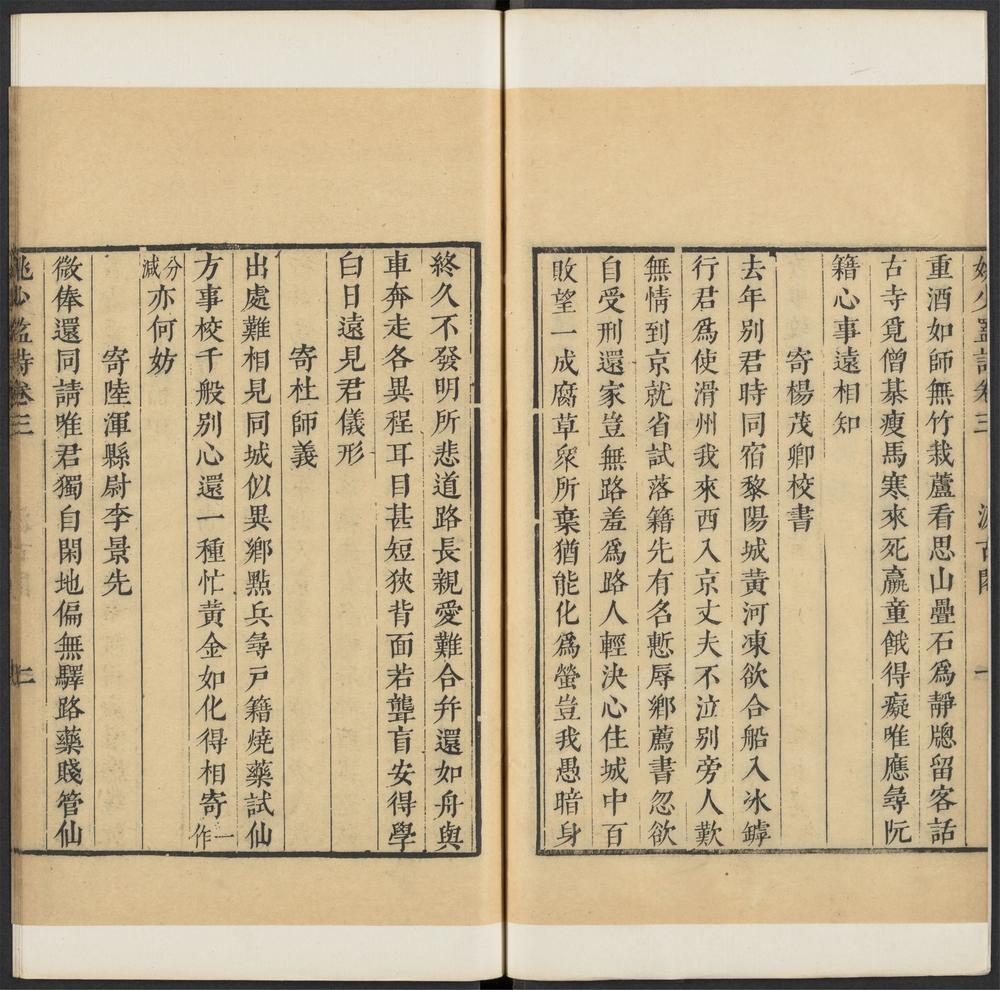 姚少監詩卷三　汲古閣　一
重酒如師無竹栽蘆看思山疊石爲靜牕留客話
古寺覓僧棊瘦馬寒來死羸童餓得癡唯應尋阮
籍心事遠相知
寄楊茂卿校書
去年別君時同宿黎陽城黃河凍欲合船入冰罅
行君爲使滑州我來西入京丈夫不泣別旁人歎
無情到京就省試落籍先有名慙辱鄉薦書忽欲
自受刑還家豈無路羞爲路人輕決心住城中百
敗望一成腐草衆所棄猶能化爲螢豈我愚暗身
終久不發明所悲道路長親愛難合幷還如舟與
車奔走各異程耳目甚短狹背面若聾盲安得學
白日遠見君儀形
寄杜師義
出處難相見同城似異鄉點兵尋戸籍燒藥試仙
方事校千般別心還一種忙黃金如化得相寄一作
分減亦何妨
寄陸渾縣尉李景先
微俸還同請唯君獨自閑地偏無驛路藥賤管仙
姚少監詩卷三　二